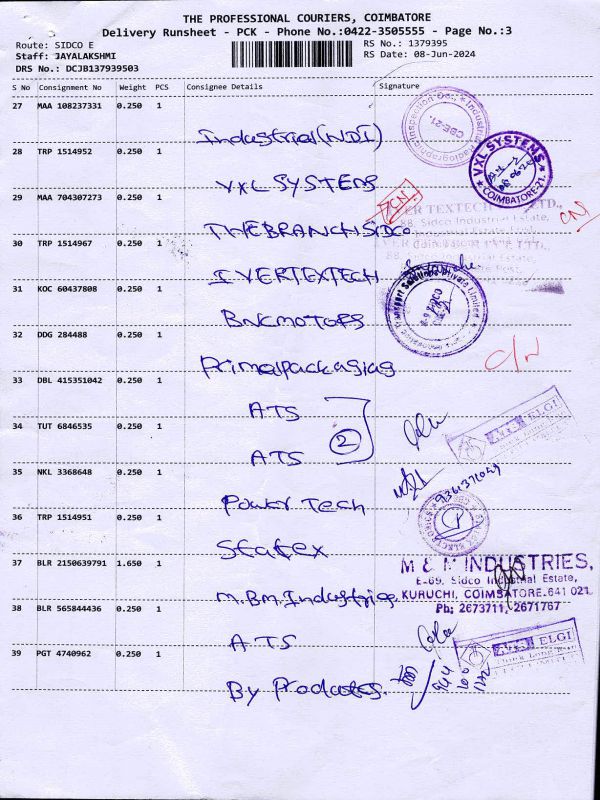 THE PROFESSIONAL COURIERS, COIMBATORE
Delivery Runsheet - PCK - Phone No.:0422-3505555 - Page No.:3
Route: SIDCO E
RS No.: 1379395
Staff: JAYALAKSHMI
RS Date: 08-Jun-2024
DRS No.: DCJB137939503
S No Consignment No Weight PCS Consignee Details Signature
27 MAA 108237331 0.250 1
Industrial(NDI)
28 TRP 1514952 0.250 1
VXL SYSTEMS
VXL SYSTEMS
COIMBATORE-21.
29 MAA 704307273 0.250 1
THEBRANCHSIDCO
30 TRP 1514967 0.250 1
I VERTEXTECH
31 KOC 60437808 0.250 1
BNCMOTORS
32 DDG 284488 0.250 1
Primalpackagias
33 DBL 415351042 0.250 1
ATS
34 TUT 6846535 0.250 1
2
ATS
ELGI
35 NKL 3368648 0.250 1
Power Tech
36 TRP 1514951 0.250 1
Statex
37 BLR 2150639791 1.650 1
M & M INDUSTRIES,
E-69, Sidco Industrial Estate,
M.B.M. Industries
KURUCHI, COIMBATORE.641 021.
Ph; 2673711, 2671767
38 BLR 565844436 0.250 1
ATS
ELGI
39 PGT 4740962 0.250 1
By Products.